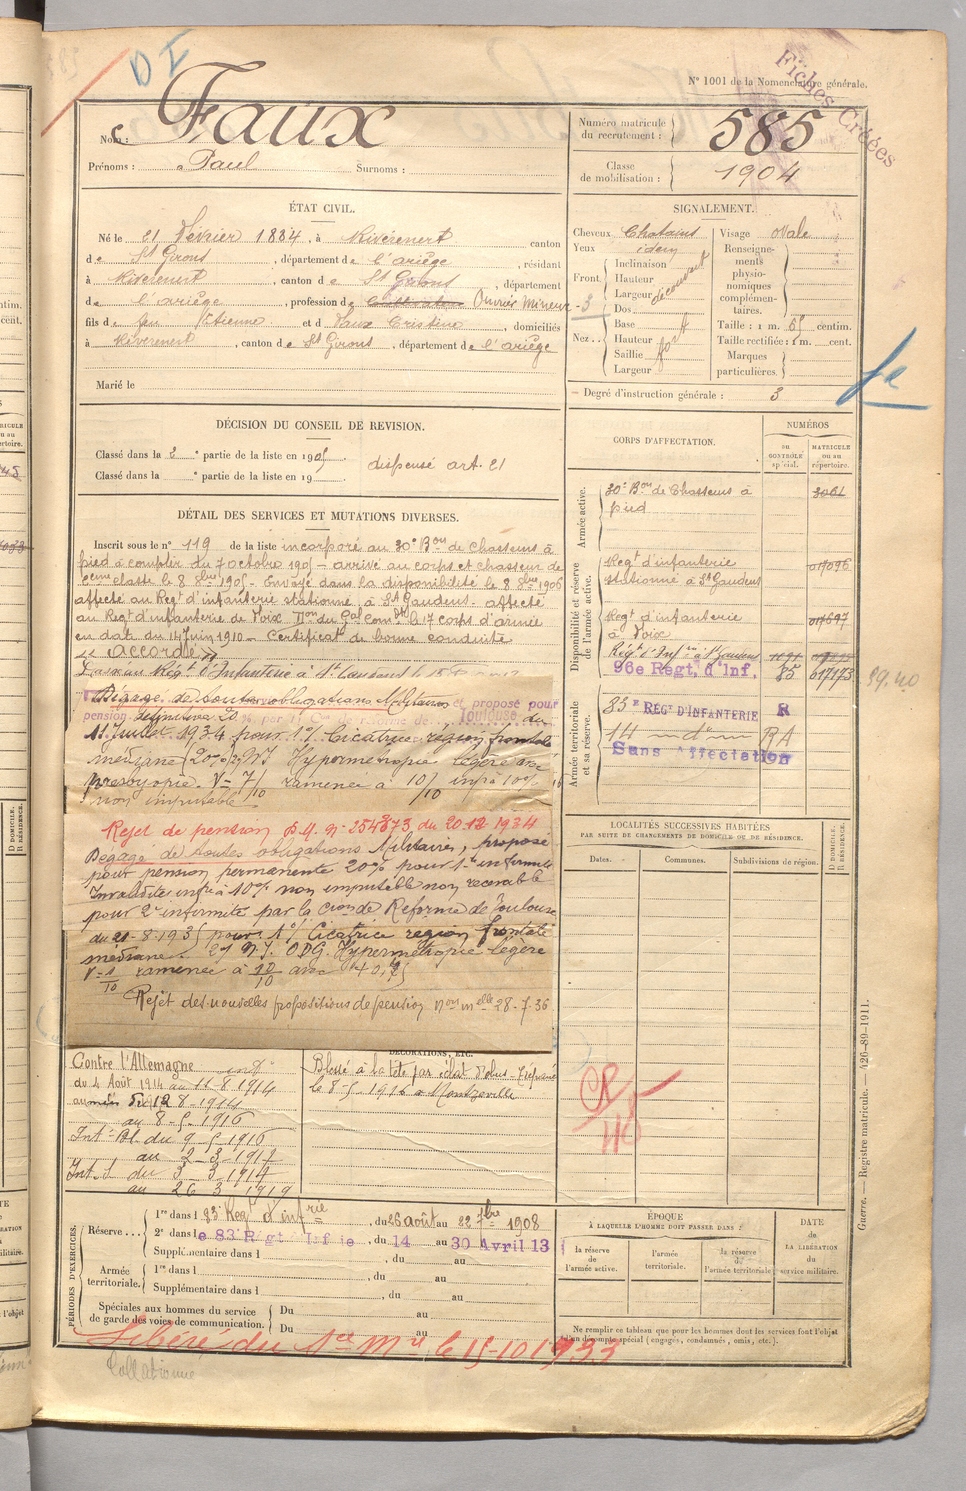 D I
Fiches Créées
N° 1001 de la Nomenclature générale.
Nom : Faux
Prénoms : Paul Surnoms :
Numéro matricule du recrutement : 585
Classe de mobilisation : 1904
ÉTAT CIVIL.
Né le 21 Février 1884, à Rivèrenert canton
de St Girons, département de l'ariège, résidant
à Rivèrenert, canton de St Girons, département
de l'ariège, profession de Cultivateur Ouvrier Mineur - 3
fils de feu Etienne et d Faux Cristine, domiciliés
à Rivèrenert, canton de St Girons, département de l'ariège
Marié le
SIGNALEMENT.
Cheveux Chatains
Yeux idem
Front Inclinaison
Hauteur
Largeur découvert
Nez Dos
Base
Hauteur fort
Saillie
Largeur
Visage ovale
Renseignements physionomiques complémentaires.
Taille : 1 m. 65 centim.
Taille rectifiée : 1 m. cent.
Marques particulières.
Degré d'instruction générale : 3
DÉCISION DU CONSEIL DE REVISION.
Classé dans la 2e partie de la liste en 1905
Classé dans la e partie de la liste en 19
dispensé art. 21
DÉTAIL DES SERVICES ET MUTATIONS DIVERSES.
Inscrit sous le n° 119 de la liste incorporé au 30e Bon de Chasseurs à
pied à compter du 7 octobre 1905 - arrivé au corps et chasseur de
2eme classe le 8 8bre 1905 - Envoyé dans la disponibilité le 8 8bre 1906
affecté au Regt d'infanterie stationné à St Gaudens - affecté
au Regt d'infanterie de Foix Don du Gal Comdt le 17 corps d'armée
en date du 14 Juin 1910 - Certificat de bonne conduite
"Accordé"
Dégagé de toutes obligations Militaires et proposé pour
pension définitive 20 % par la Con de réforme de Toulouse du
11 Juillet 1934 pour 1°/ Cicatrice région frontale
médiane (20%) 2°/ N.I Hypermétropie légère avec
presbyopie. V = 7/10 ramenée à 10/10 infr à 10%
non imputable
Rejet de pension D.M. n° 254873 du 20.12.1934
Dégagé de toutes obligations Militaires, proposé
pour pension permanente 20% pour 1re infirmité
Invalidité infr à 10% non imputable non recevable
pour 2e infirmité par la Cion de Réforme de Toulouse
du 21-8-1935 pour : 1°/ Cicatrice région frontale
médiane. 2°/ N.I. ODG. Hypermétropie légère
V = 1/10 ramenée à 10/10 avec + 0,75
Rejet des nouvelles propositions de pension Non melle 28-7-36
CORPS D'AFFECTATION.
NUMÉROS
au CONTRÔLE spécial.
MATRICULE ou au répertoire.
Armée active.
30e Bon de Chasseurs à pied 3061
Disponibilité et réserve de l'armée active.
Regt d'infanterie stationné à St Gaudens 017096
Regt d'infanterie à Foix 017697
Régt d'Infrie à St Gaudens
96e Regt, d'Inf. 85 017173
Armée territoriale et sa réserve.
83e REGT D'INFANTERIE R
14 — d° — RA
Sans Affectation
LOCALITÉS SUCCESSIVES HABITÉES
PAR SUITE DE CHANGEMENTS DE DOMICILE OU DE RÉSIDENCE.
Dates. Communes. Subdivisions de région.
D DOMICILE. R RÉSIDENCE.
Contre l'Allemagne
du 4 Août 1914 au 11-8-1914
du 12 8-1914
au 8-5-1916
Int. Bl. du 9-5-1916
au 2-3-1917
Int. S du 3 3-1917
au 26 3 1919
DÉCORATIONS, ETC.
Blessé à la tête par éclat d'obus - Trépané
le 8-5-1916 à Montzeville
CR
40
PÉRIODES D'EXERCICES.
Réserve 1re dans le 83 Regt d'infrie, du 26 août au 22 7bre 1908
2e dans le 83 Régt Infie, du 14 au 30 Avril 13
Supplémentaire dans l , du au
Armée territoriale. 1re dans l , du au
Supplémentaire dans l , du au
Spéciales aux hommes du service de garde des voies de communication. Du au
Du au
ÉPOQUE
À LAQUELLE L'HOMME DOIT PASSER DANS :
la réserve de l'armée active.
l'armée territoriale.
la réserve de l'armée territoriale
DATE de LA LIBÉRATION du service militaire.
Ne remplir ce tableau que pour les hommes dont les services font l'objet d'un décompte spécial (engagés, condamnés, omis, etc.).
Libéré du Sce Mre le 15-10 1933
Collationné
Guerre. — Registre matricule. — 426-89-1911.